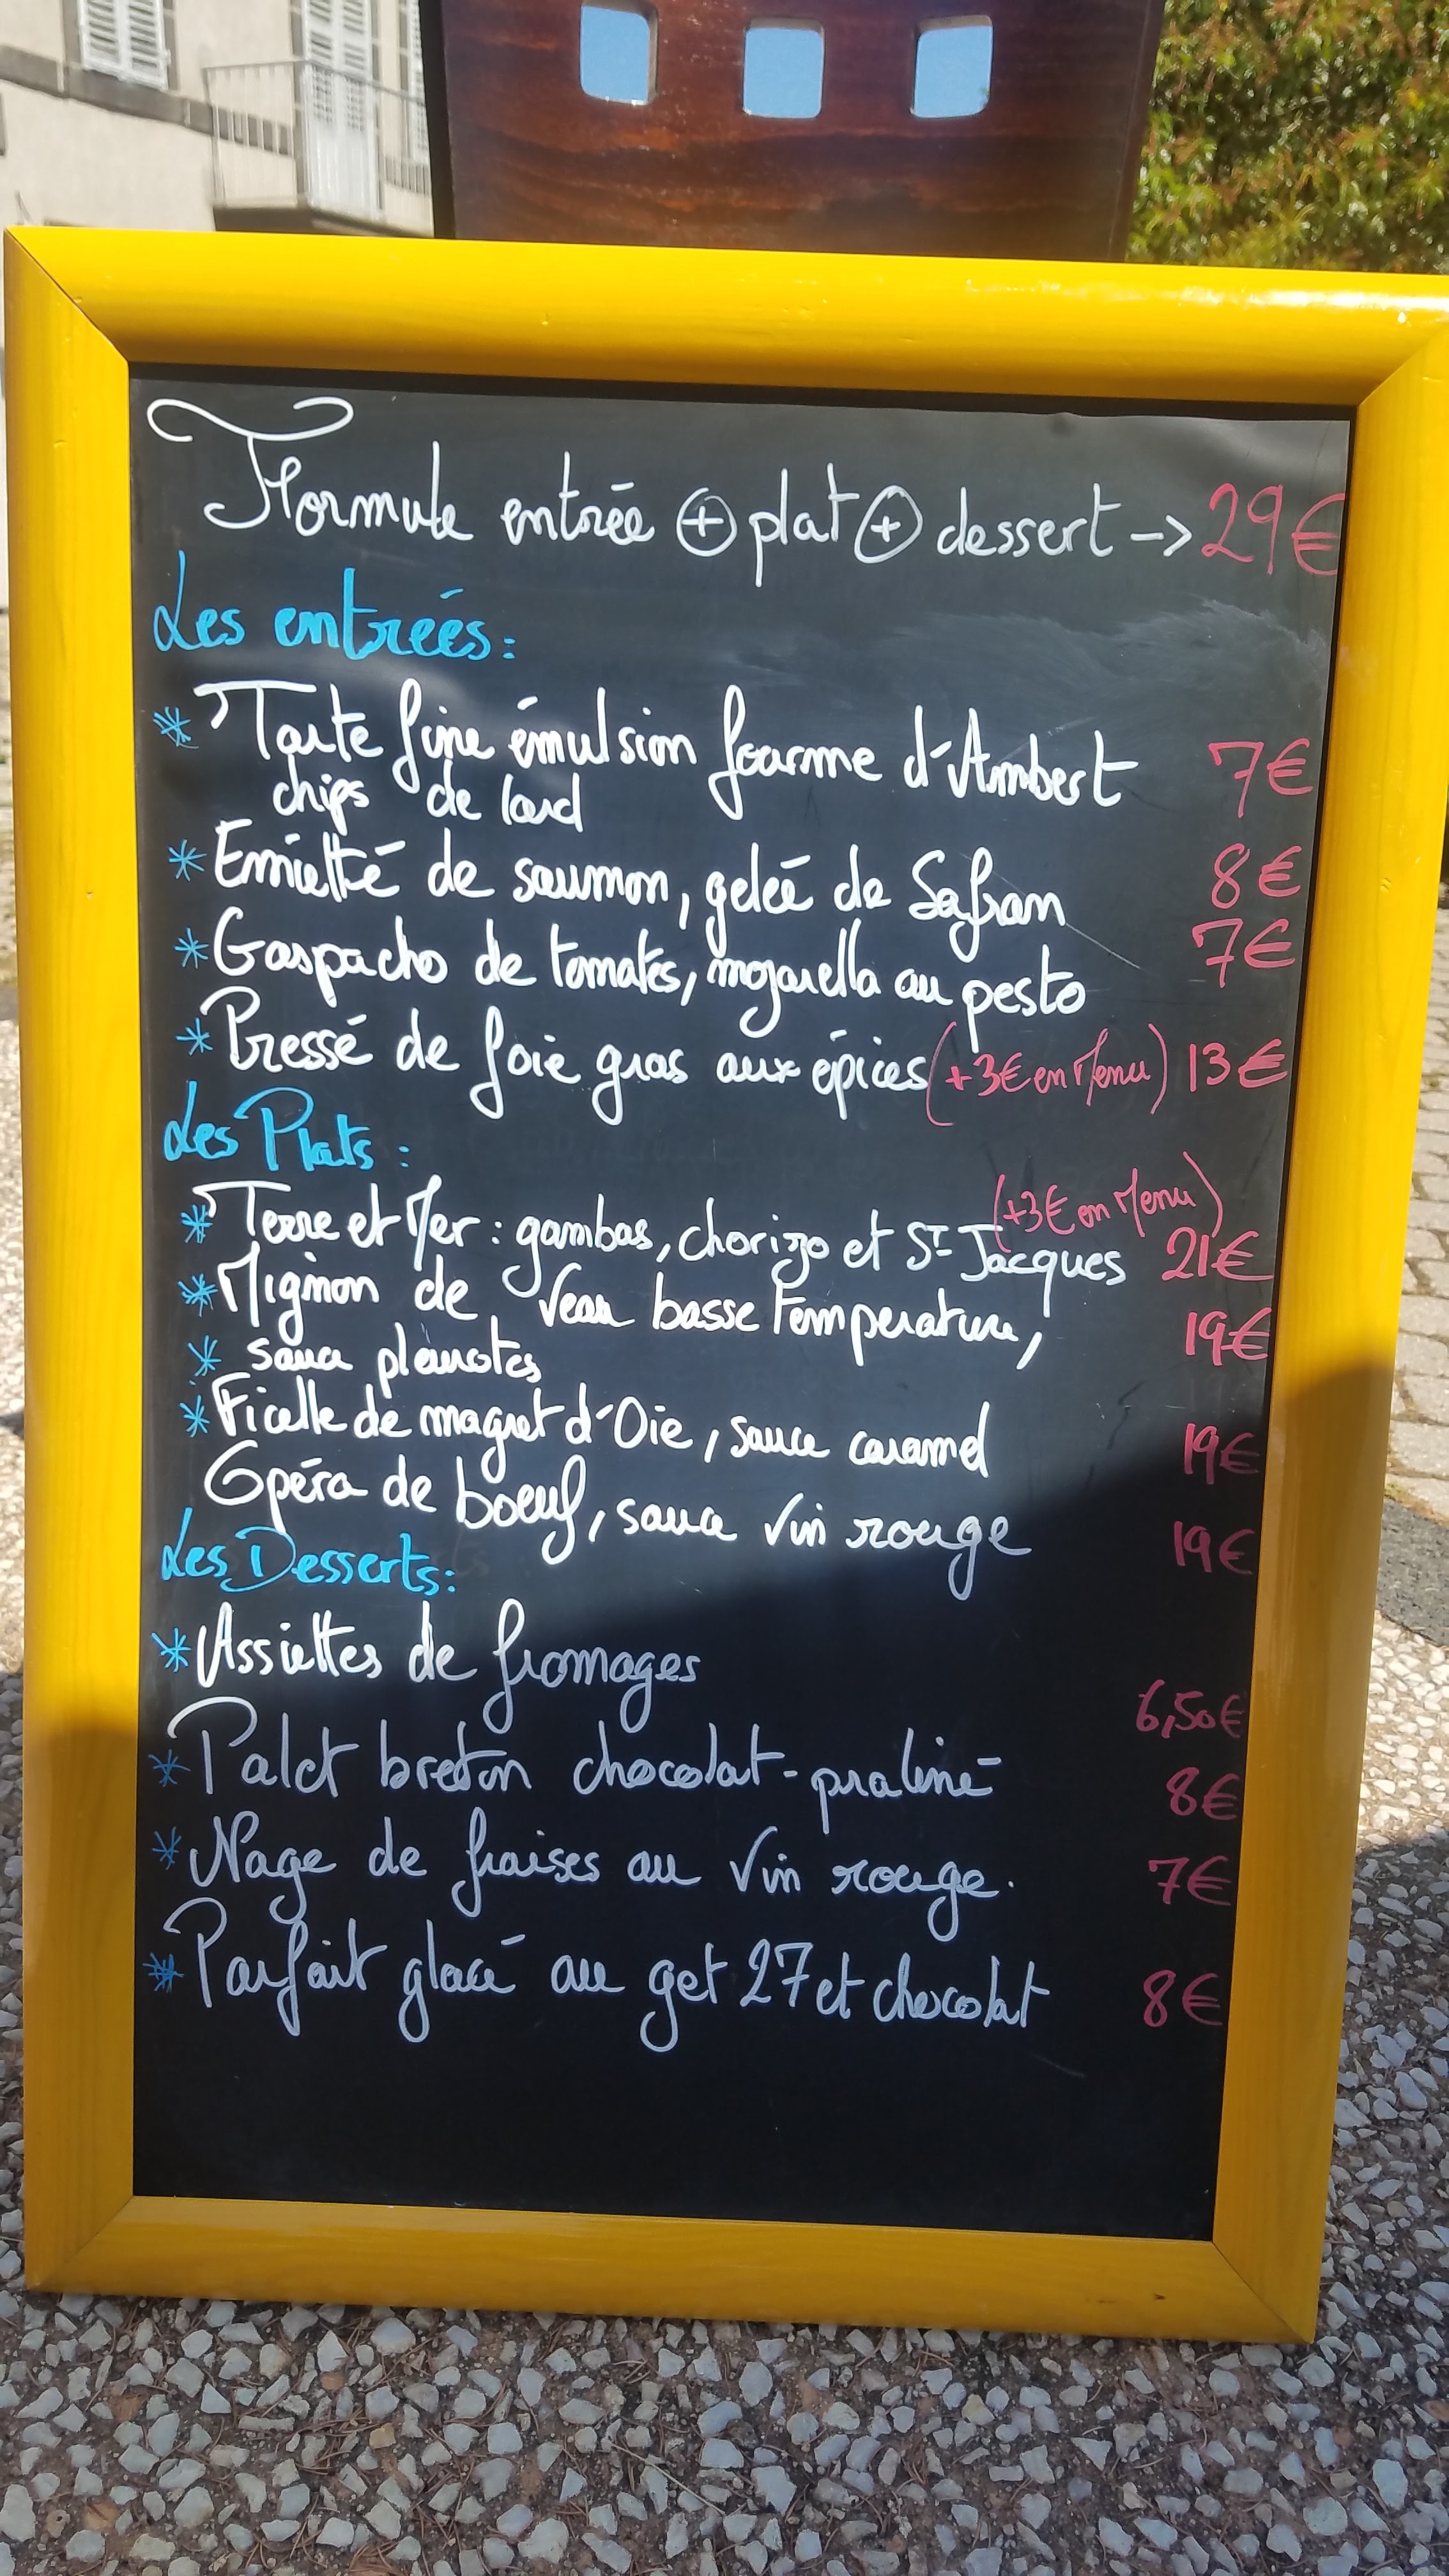 Formule entrée + plat + dessert -> 29€
Les entrées :
* Tarte fine émulsion fourme d'Ambert 7€
chips de lard
* Emietté de saumon, gelée de Safran 8€
* Gaspacho de tomates, mozarella au pesto 7€
* Pressé de foie gras aux épices (+3€ en Menu) 13€
Les Plats :
(+3€ en Menu)
* Terre et Mer : gambas, chorizo et St Jacques 21€
* Mignon de Veau basse Température, 19€
* sauce pleurotes
* Ficelle de magret d'Oie, sauce caramel 19€
Opéra de boeuf, sauce Vin rouge 19€
Les Desserts :
* Assiettes de fromages 6,50€
* Palet breton chocolat-praliné 8€
* Nage de fraises au Vin rouge. 7€
* Parfait glacé au get 27 et chocolat 8€